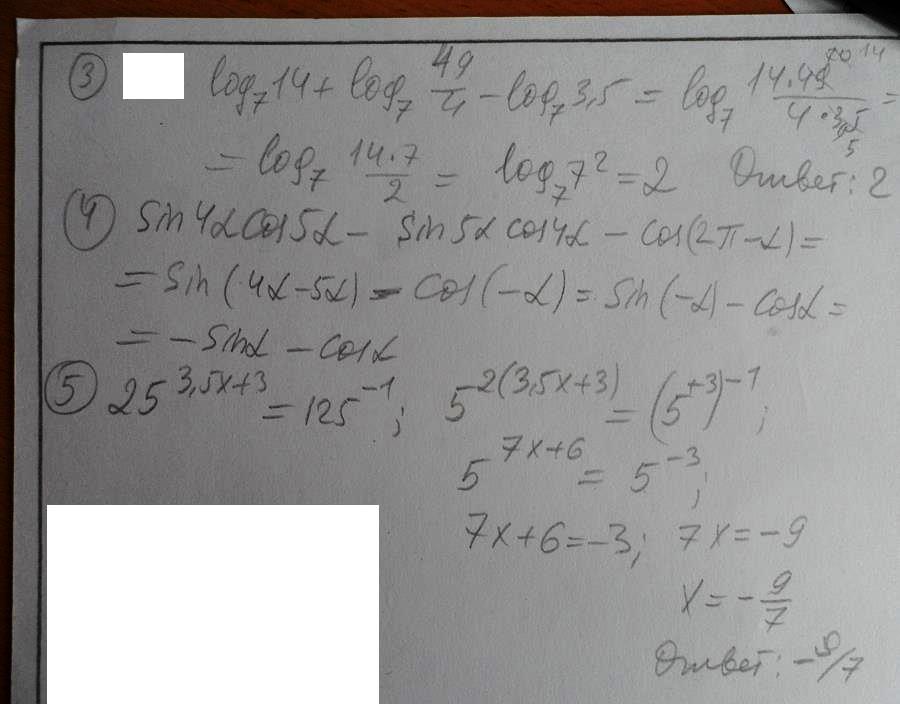 ③ log₇14 + log₇ 49/4 − log₇3,5 = log₇ (14·49)/(4·3,5) =
= log₇ (14·7)/2 = log₇7² = 2 Ответ: 2
④ sin4α cos5α − sin5α cos4α − cos(2π−α) =
= sin(4α−5α) − cos(−α) = sin(−α) − cosα =
= −sinα − cosα
⑤ 25^(3,5x+3) = 125^(−1); 5^(2(3,5x+3)) = (5^(+3))^(−1);
5^(7x+6) = 5^(−3);
7x+6=−3; 7x=−9
x = −9/7
Ответ: −9/7